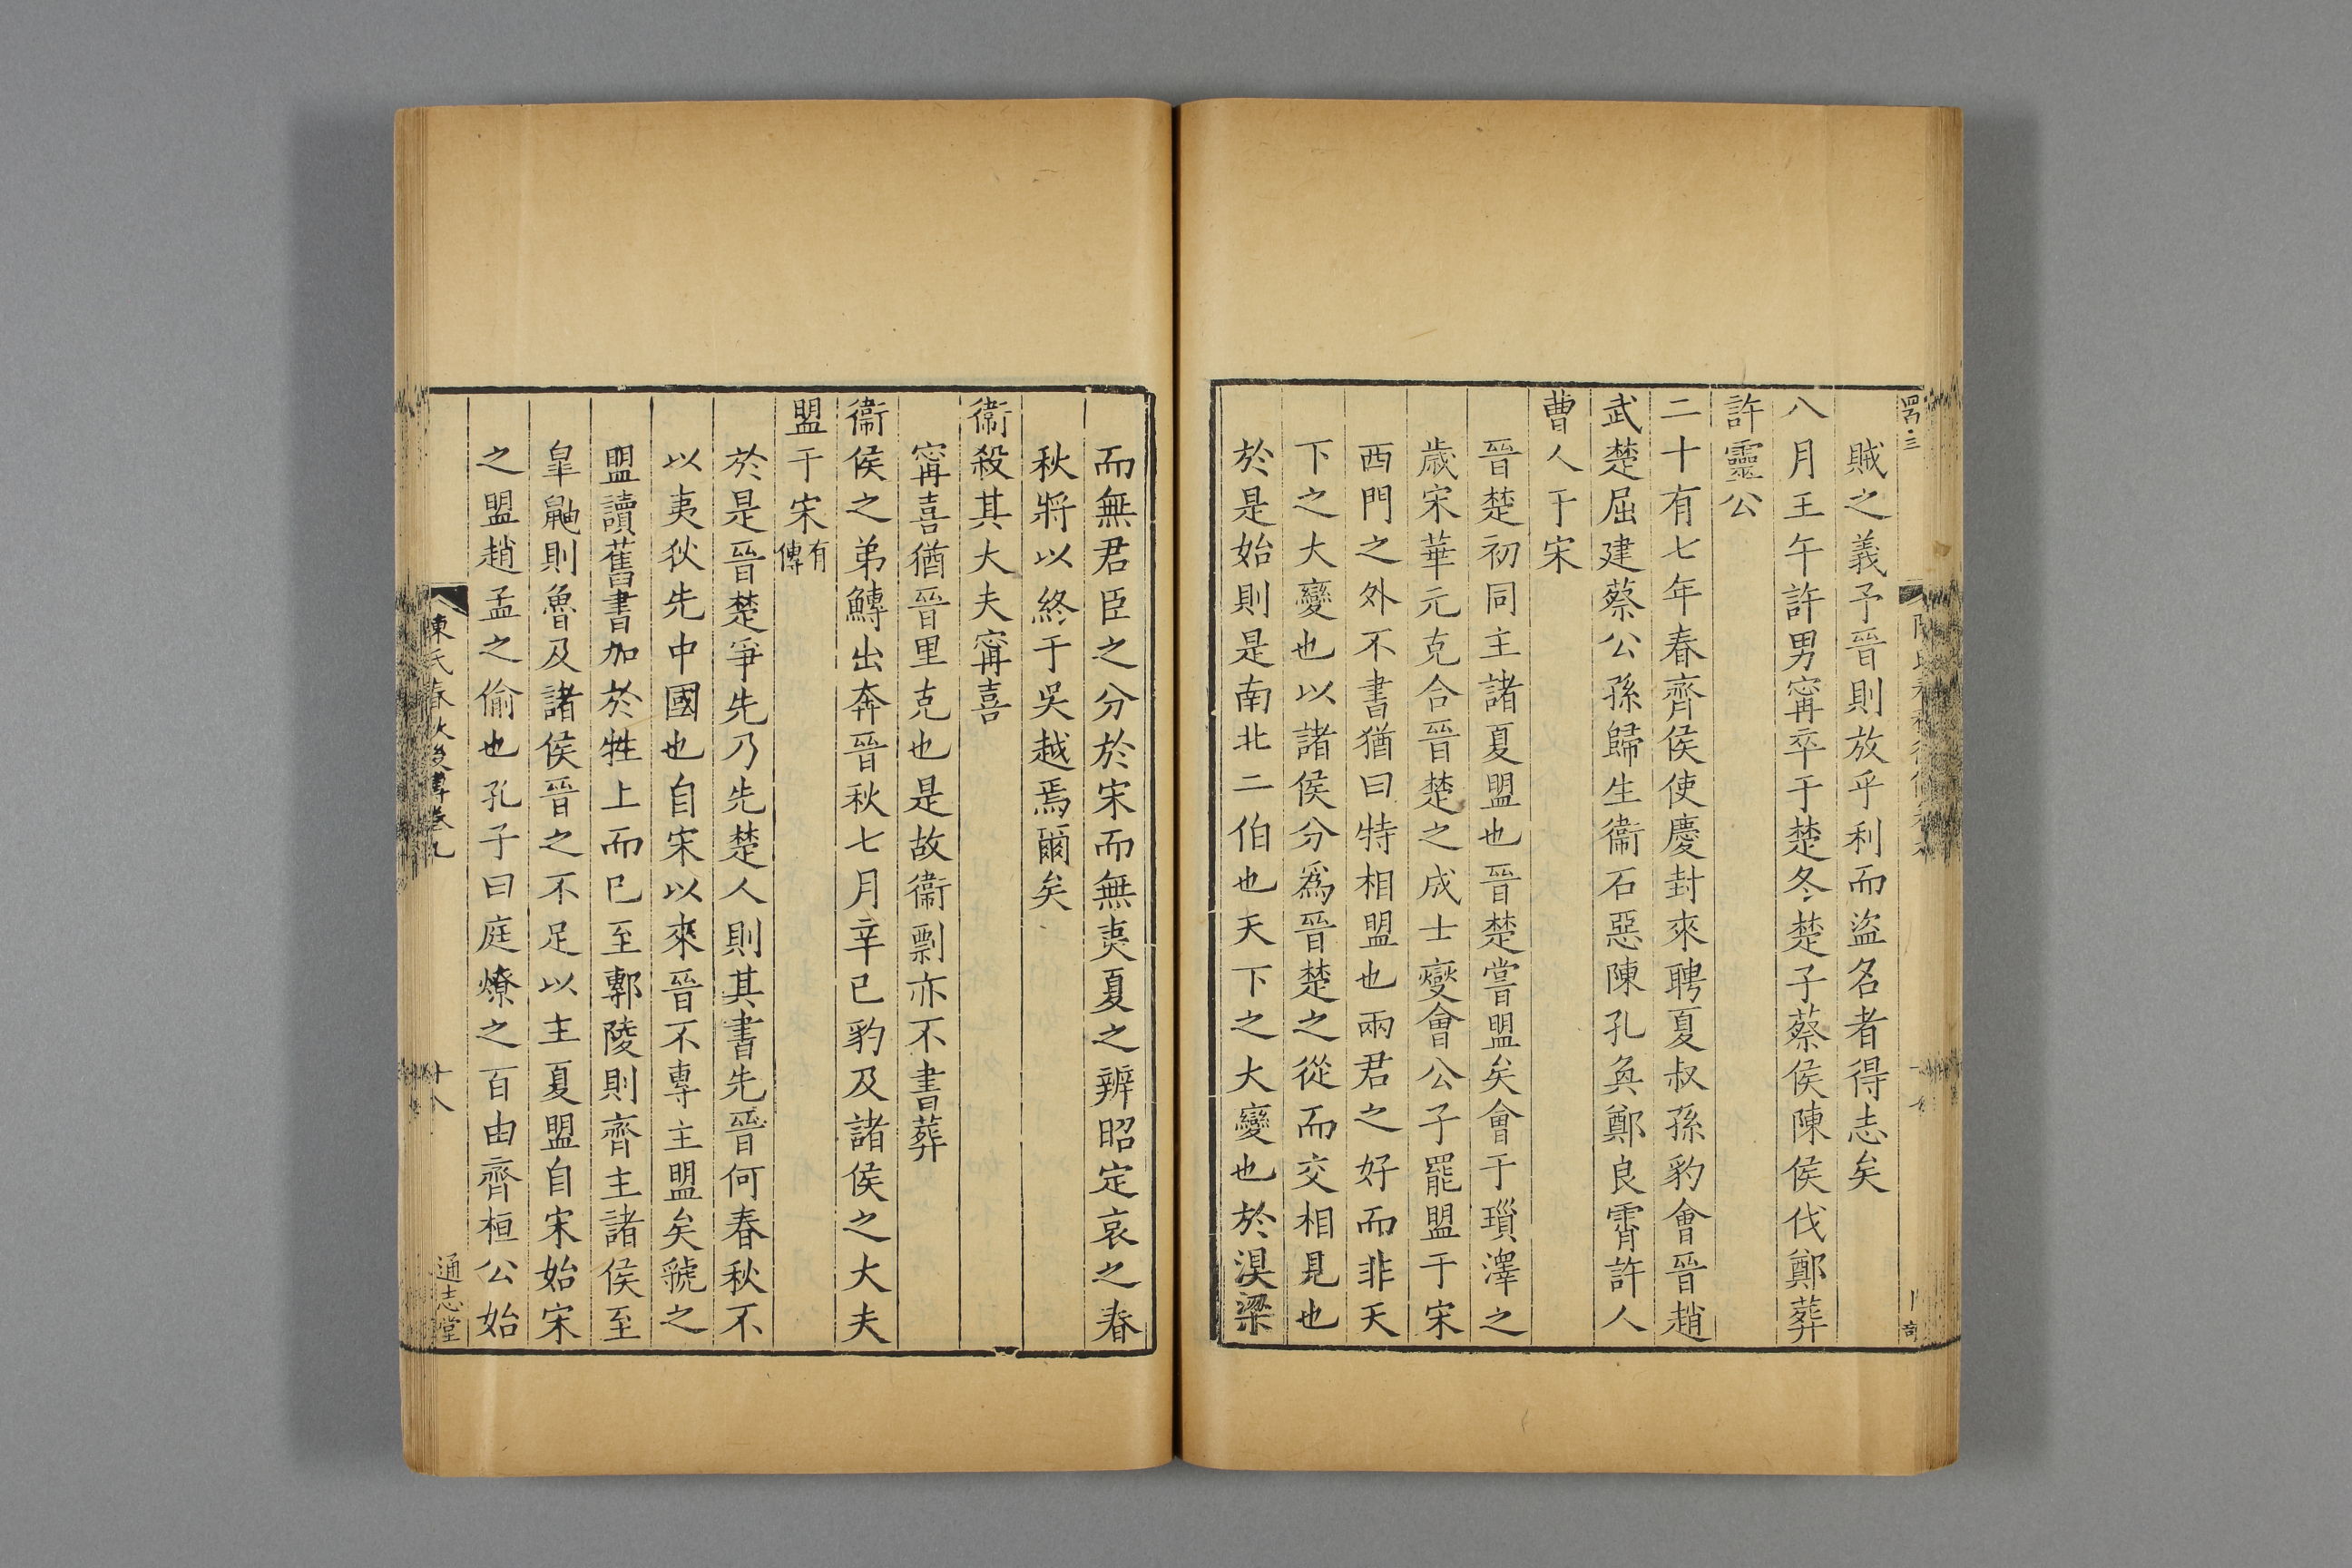 賊之義予晉則放乎利而盜名者得志矣
八月壬午許男甯卒于楚冬楚子蔡侯陳侯伐鄭葬
許靈公
二十有七年春齊侯使慶封來聘夏叔孫豹會晉趙
武楚屈建蔡公孫歸生衞石惡陳孔奐鄭良霄許人
曹人于宋
晉楚初同主諸夏盟也晉楚嘗盟矣會于瑣澤之
歲宋華元克合晉楚之成士燮會公子罷盟于宋
西門之外不書猶曰特相盟也兩君之好而非天
下之大變也以諸侯分爲晉楚之從而交相見也
於是始則是南北二伯也天下之大變也於湨梁
而無君臣之分於宋而無夷夏之辨昭定哀之春
秋將以終于吳越焉爾矣
衞殺其大夫甯喜
甯喜猶晉里克也是故衞剽亦不書葬
衞侯之弟鱄出奔晉秋七月辛巳豹及諸侯之大夫
盟于宋有傳
於是晉楚爭先乃先楚人則其書先晉何春秋不
以夷狄先中國也自宋以來晉不專主盟矣虢之
盟讀舊書加於牲上而已至鄟陵則齊主諸侯至
皐鼬則魯及諸侯晉之不足以主夏盟自宋始宋
之盟趙孟之偷也孔子曰庭燎之百由齊桓公始
陳氏春秋後傳卷九
十八
通志堂